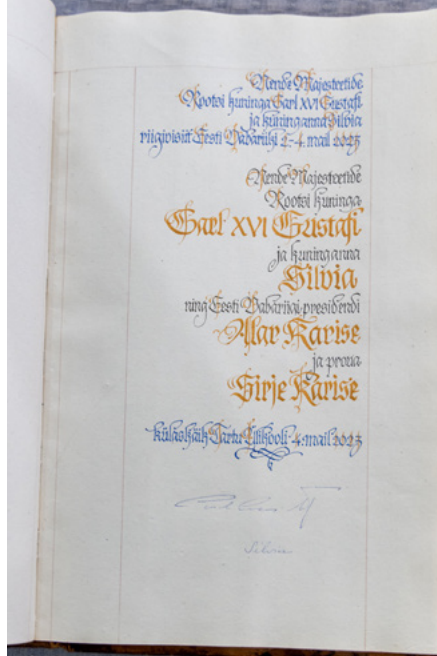 Nende Majesteetide
Rootsi kuninga Carl XVI Gustafi
ja kuninganna Silvia
riigivisiit Eesti Vabariiki 2.-4. mail 2023
Nende Majesteetide
Rootsi kuninga
Carl XVI Gustafi
ja kuninganna
Silvia
ning Eesti Vabariigi presidendi
Alar Karise
ja proua
Sirje Karise
külaskäik Tartu Ülikooli 4. mail 2023
Silvia